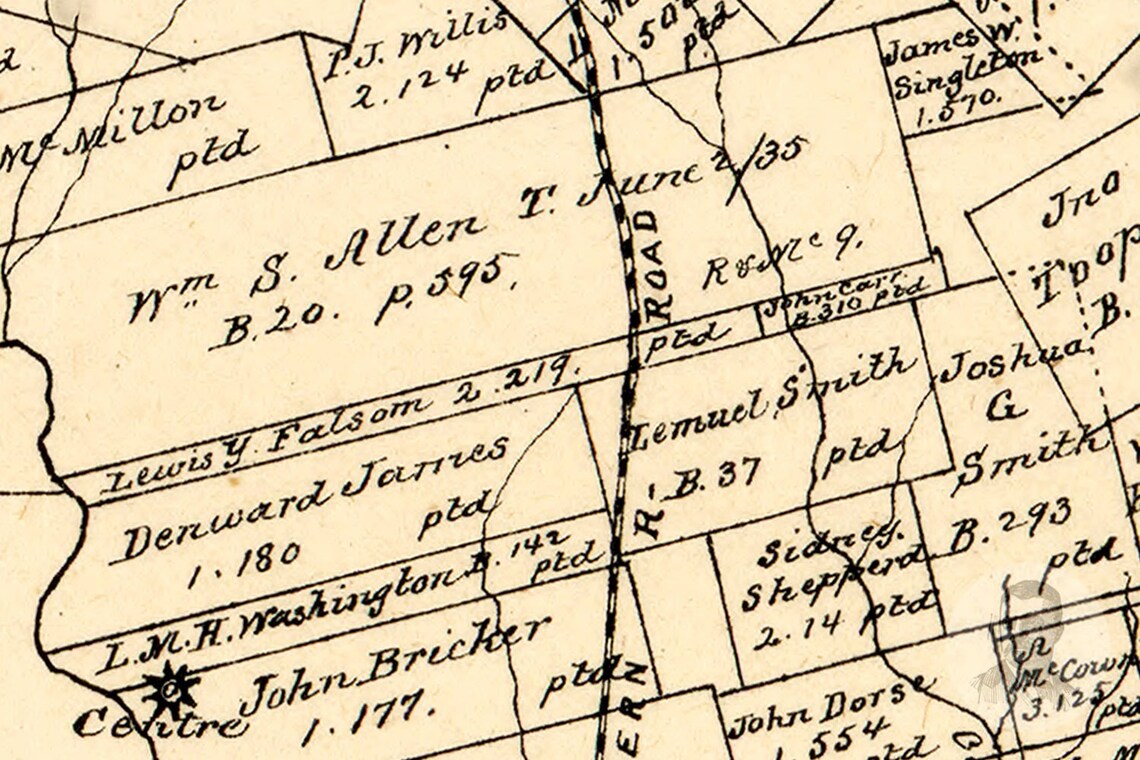 d.
Mc Millon
ptd
P.J. Willis
2.124 ptd
1.50
ptd
James W.
Singleton
1.570.
Wm S. Allen T. June 2/35
B.20. p.595.
R & Mc 9.
ROAD
Jno
B.
Lewis Y. Falsom 2.219.
ptd
John Carr
B.310 ptd
Denward James
ptd
1.180
Lemuel Smith
B.37 ptd
R.
Joshua
G
Smith
B.293
ptd
L.M.H. Washington B.142
ptd
Sidney.
Shepperd
2.14 ptd
John Bricker
ptd
1.177.
Centre
ERN
John Dorse
1.554
ptd
McCown
3.125
ptd